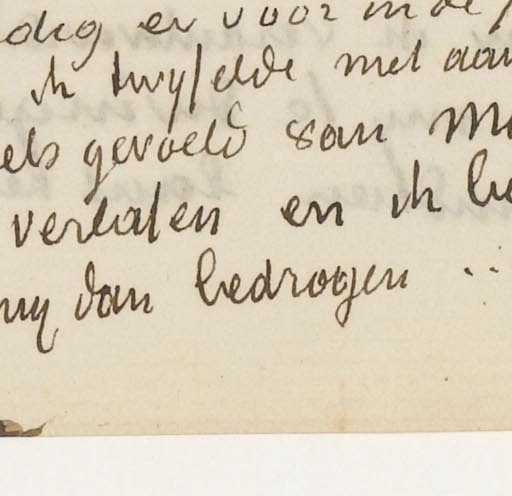 dig er voor in de
ik twyfelde met aan
els gevoeld san Mo
verlaten en ik be
my dan bedrogen ..